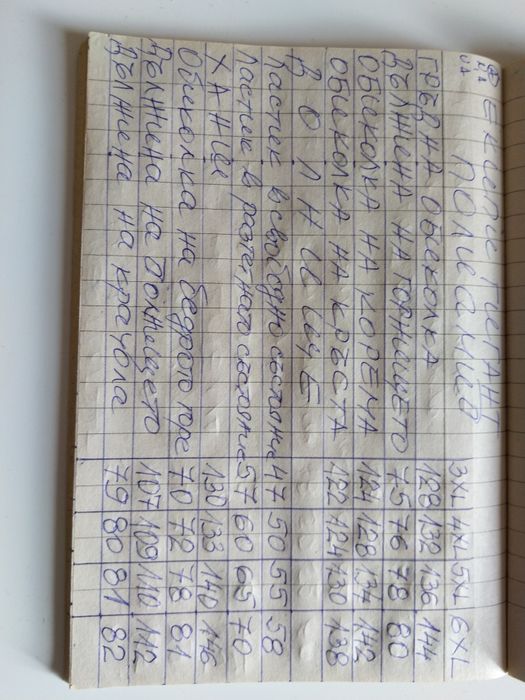 ЕКСЕЛЕ ГИГАНТ
ПОЛИАМИД
3XL 4XL 5XL 6XL
ГРЪДНА ОБИКОЛКА 128 132 136 144
ДЪЛЖИНА НА ГОРНИЩЕТО 75 76 78 80
ОБИКОЛКА НА КОРЕМА 124 128 134 142
ОБИКОЛКА НА КРЪСТА 122 124 130 138
ДОЛНИЩЕ
Ластик в свободно състояние 47 50 55 58
Ластик в разтегнато състояние 57 60 65 70
ХАНШ 130 133 140 146
Обиколка на бедрото горе 70 72 78 81
Дължина на Долнището 107 109 110 112
Дължина на крачола 79 80 81 82